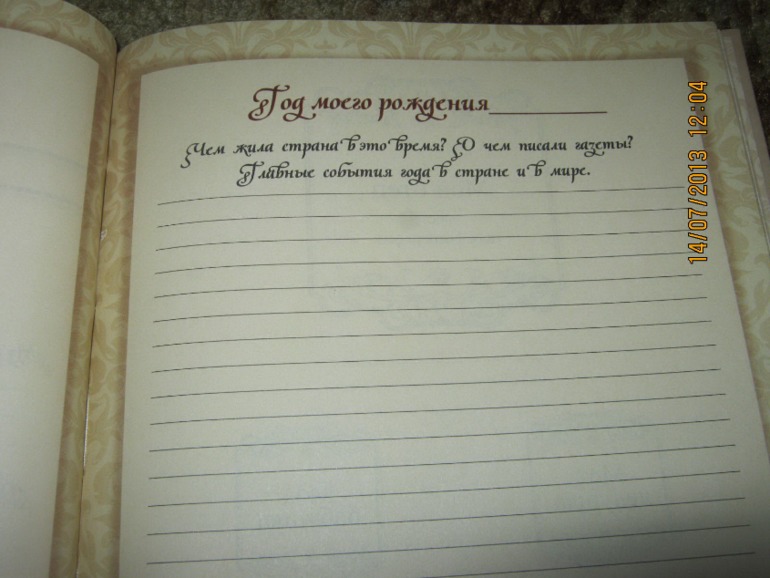 Год моего рождения__________
Чем жила страна в это время? О чем писали газеты?
Главные события года в стране и в мире.
14/07/2013 12:04